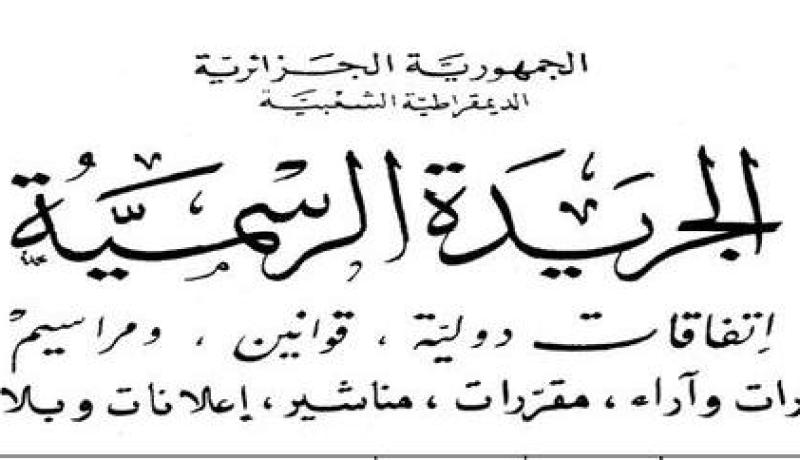 الجمهورية الجزائرية
الديمقراطية الشعبية
الجريدة الرسمية
إتفاقات دولية ، قوانين ، ومراسيم
رات وآراء ، مقررات ، مناشير ، إعلانات وبلا